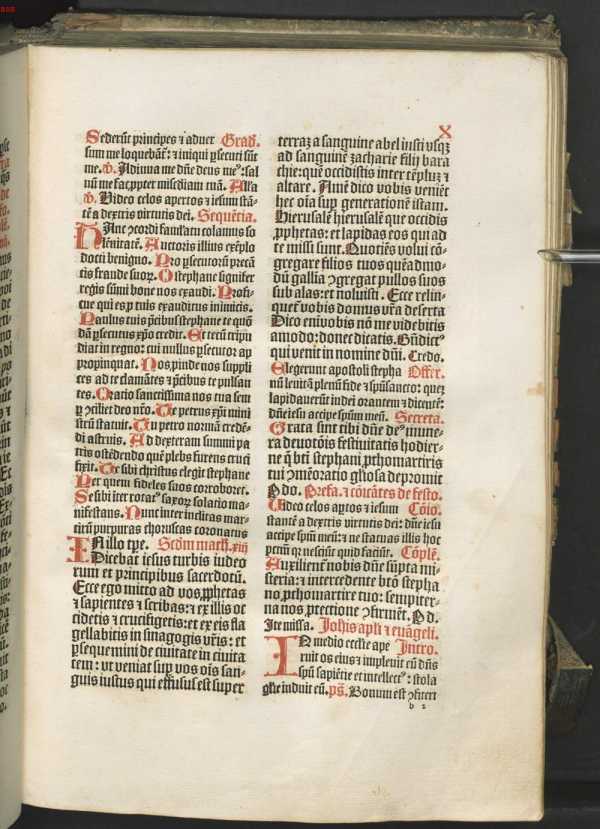 X
Sederūt principes ⁊ aduer Grad̄.
sum me loquebāt᷑: ⁊ iniqui ꝑsecuti sūt
me. ꝟ. Adiuua me dn̄e deus me⁹: sal
uū me fac ꝓpter misc̄diam tuā. Alla
ꝟ. Video celos apertos et iesum stā-
tē a dextris virtutis dei. Sequētia.
HAnc ꝯcordi famulatu colamus so
lēnitatē. Auctoris illius exēplo
docti benigno. Pro ꝑsecutorū precā
tis fraude suoꝝ. O stephane signifer
regis sūmi bone nos exaudi. Profi-
cue qui es ꝓ tuis exauditus inimicis.
Paulus tuis p̄cibus stephane te quō
dā ꝑsecutus xp̄o credit. Et tecū tripu
diat in regno: cui nullus ꝑsecutor ap
propinquat. Nos pinde nos suppli
ces ad te clamātes ⁊ p̄cibus te pulsan
tes. Oratio sanctissima nos tua sem
ꝑ ꝯciliet deo nr̄o. Te petrus xp̄i mini
strū statuit. Tu petro normā credē-
di astruis. Ad dexteram summi pa
tris ostēdendo quē plebs furens cruci
fixit. Te sibi christus elegit stephane
Per quem fideles suos corroboret.
Se sibi iter rotat⁹ saxoꝝ solatio ma-
nifestans. Nunc inter inclitas mar-
tirū purpuras choruscas coronatus
IN illo tpe. Scd̄m math. xiij
Dicebat iesus turbis iudeo
rum et principibus sacerdotū.
Ecce ego mitto ad vos ꝓphetas
⁊ sapientes ⁊ scribas: ⁊ ex illis oc
cidetis ⁊ crucifigetis: et ex eis fla
gellabitis in sinagogis vr̄is: et
ꝑsequemini de ciuitate in ciuita
tem: vt veniat sup vos oīs san-
guis iustus qui effusus est super
terrā: a sanguine abel iusti vsqꝫ
ad sanguinē zacharie filij bara
chie: quē occidistis inter tēpluꝫ ⁊
altare. Amē dico vobis veniēt
hec oīa suꝑ generationē istam.
Hierusalē hierusalē que occidis
ꝓphetas: et lapidas eos qui ad
te missi sunt. Quotiēs volui cō-
gregare filios tuos quēadmo-
dū gallīa ꝯgregat pullos suos
sub alas: et noluisti. Ecce relin-
quet᷑ vobis domus vr̄a deserta
Dico eni vobis nō me videbitis
amodo: donec dicatis. Bn̄dict⁹
qui venit in nomine dn̄i. Credo.
Elegerunt apostoli stepha Offer.
nū leuitā plenū fide ⁊ spūsancto: queꝫ
lapidauerūt iudei orantem ⁊ dicentē:
dn̄e iesu accipe spūm meū. Secreta.
Grata sint tibi dn̄e de⁹ mune-
ra deuotōis festiuitatis hodier-
ne q̄ bt̄i stephani ꝓthomartiris
tui ꝯmēoratio gl̄iosa depromit
P do. Prefa. ⁊ cōicātes de festo.
Video celos aꝑtos et iesum Cōio.
stantē a dextris virtutis dei: dn̄e iesu
accipe spūm meū: et ne statuas illis hoc
pctm̄ qꝛ nesciūt quid faciūt. Cōple.
Auxiliēt᷑ nobis dn̄e sūpta mi-
steria: ⁊ intercedente bt̄o stepha
no ꝓthomartire tuo: sempiter-
na nos ꝓtectione ꝯfirmēt. P d.
Ite missa. Johīs apl̄i ⁊ euāgeli.
IN medio eccl̄ie ape Intro.
ruit os eius ⁊ impleuit eū dn̄s
spū sapiētie et intellect⁹: stola
gl̄ie induit eū. ps̄. Bonum est ꝯfiteri
b 2